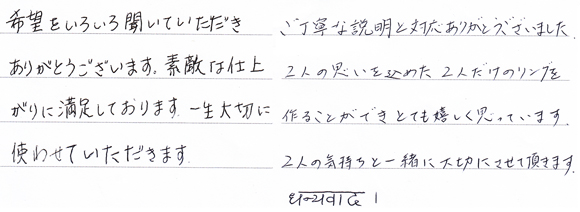 希望をいろいろ聞いていただき
ありがとうございます。素敵な仕上
がりに満足しております 一生大切に
使わせていただきます
ご丁寧な説明と対応ありがとうございました。
2人の思いを込めた 2人だけのリングを
作ることができとても嬉しく思っています。
2人の気持ちと一緒に大切にさせて頂きます。